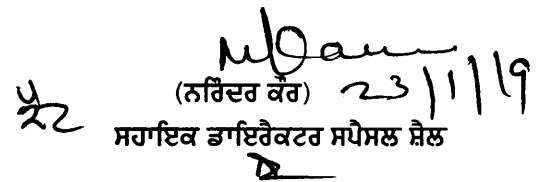 (ਨਰਿੰਦਰ ਕੌਰ) 23/1/19
ਸਹਾਇਕ ਡਾਇਰੈਕਟਰ ਸਪੈਸਲ ਸ਼ੈਲ